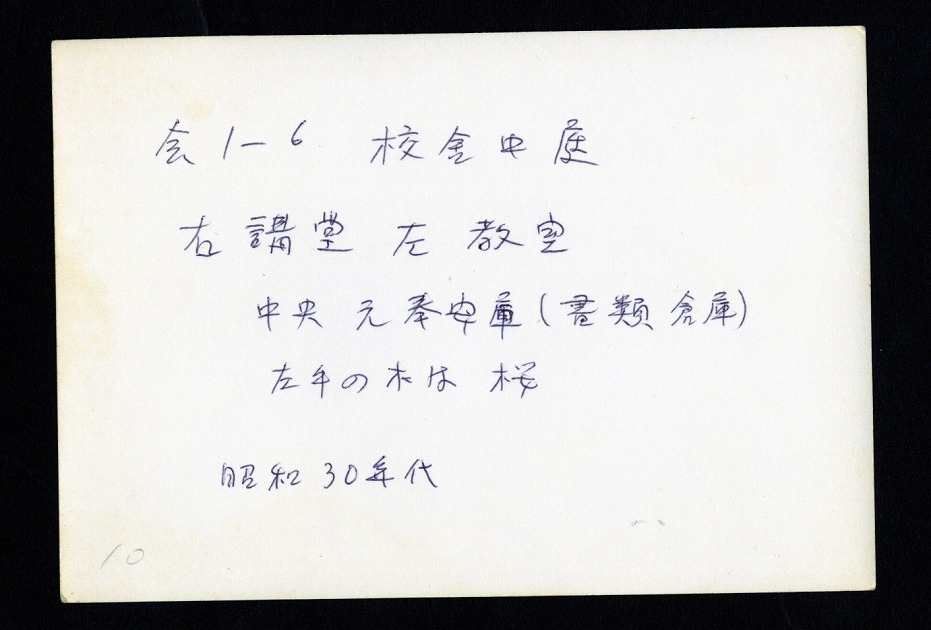 会1-6 校舎中庭
右 講堂 左 教室
中央 元奉安庫(書類倉庫)
左手の木は 桜
昭和30年代
10